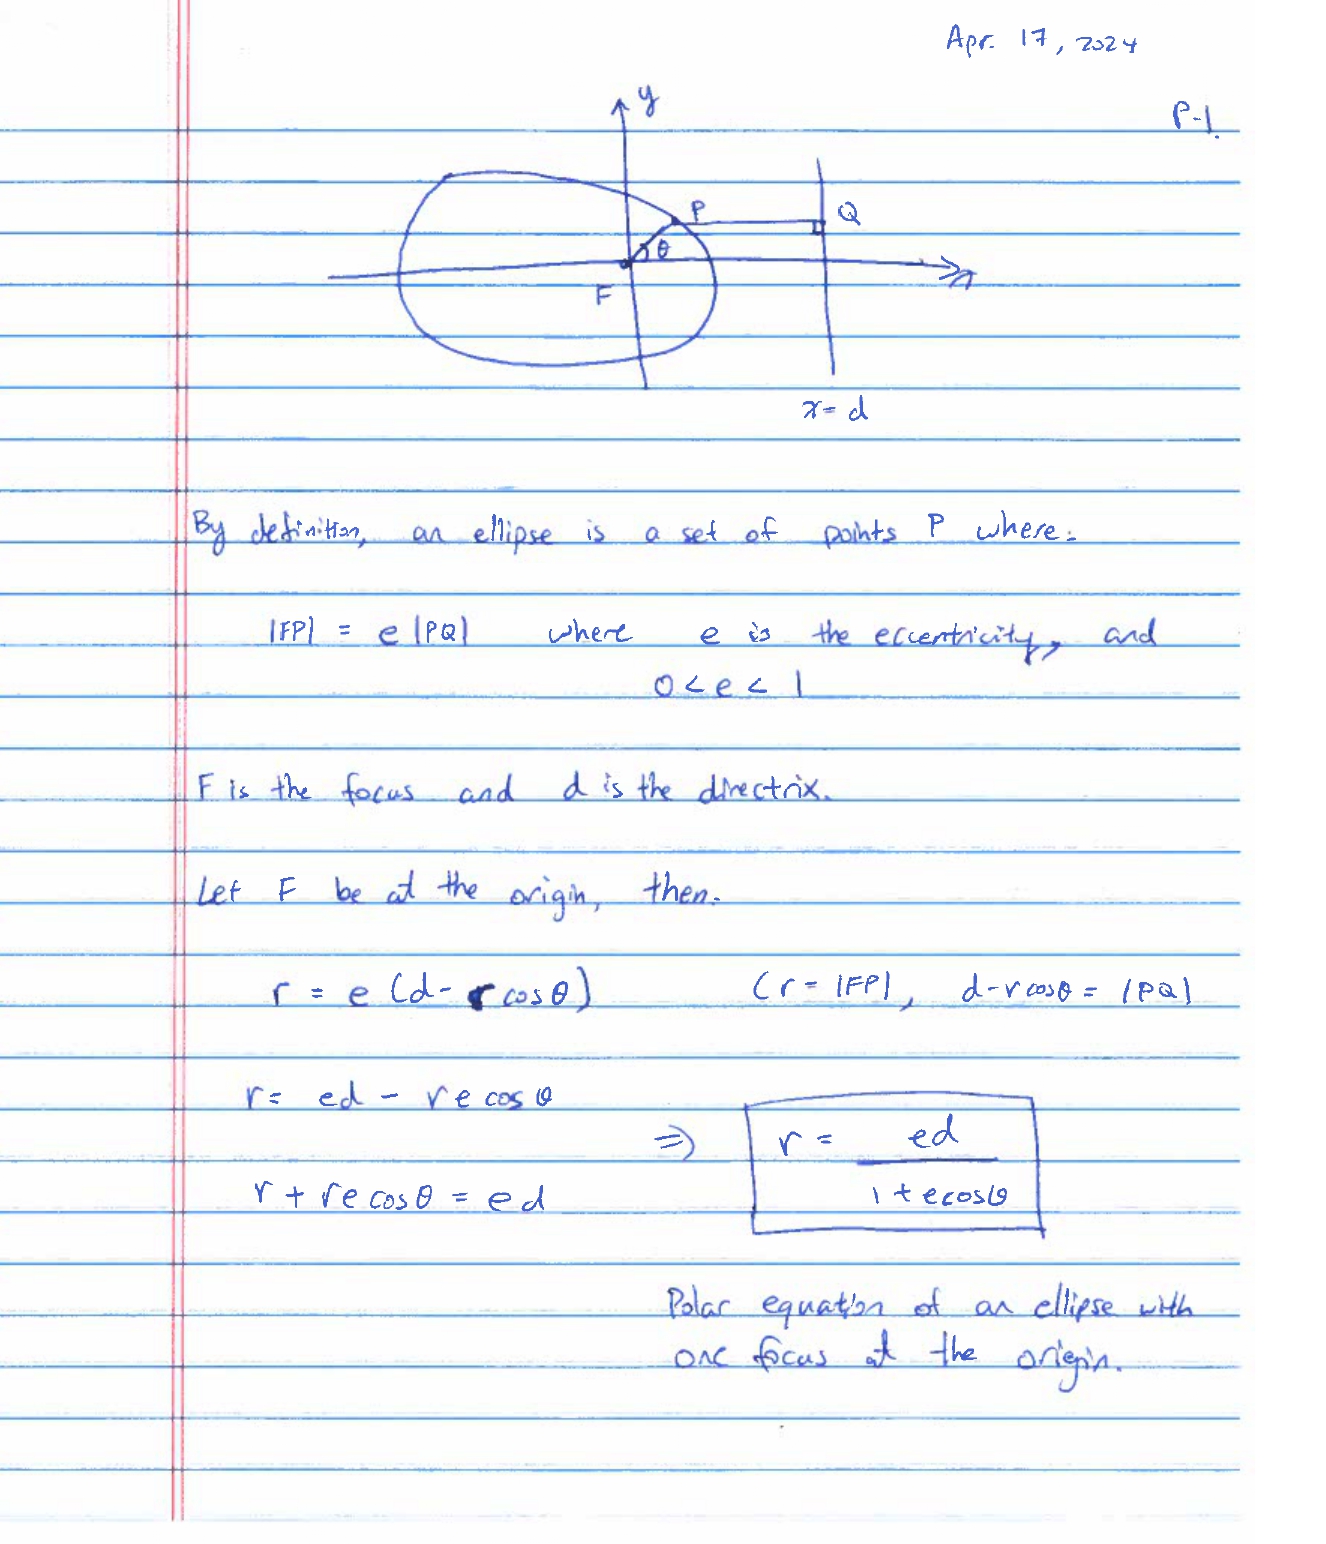 Apr. 17, 2024
P-1.
y
P
Q
θ
F
x
x = d
By definition, an ellipse is a set of points P where:
|FP| = e |PQ| where e is the eccentricity, and
0 < e < 1
F is the focus and d is the directrix.
Let F be at the origin, then:
r = e (d - r cos θ) (r = |FP|, d - r cos θ = |PQ|
r = ed - r e cos θ
⇒ r = ed / 1 + e cos θ
r + r e cos θ = ed
Polar equation of an ellipse with
one focus at the origin.